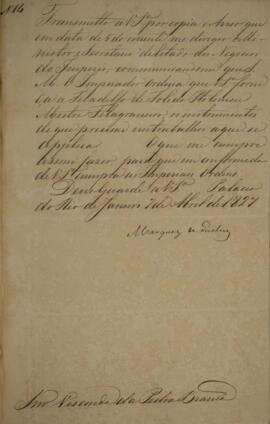 N 16
Transmitto a V Sª por copia o Aviso que
em data de 4 do corrente me dirigio
Ministro e Secretario de Estado dos Negocios
do Imperio, communicando-me que S.
M. O Imperador Ordena que V Sª forne
ça a
Mestre os instrumentos
de que precisar nos trabalhos a que se
applica. O que me cumpre
assim fazer para que na conformida
de V Sª cumpra as Imperiaes Ordens.
Deos Guarde a V Sª Palacio
do Rio de Janeiro 7 de Abril de 1827
Marquez de Queluz
Snr Visconde da Pedra Branca